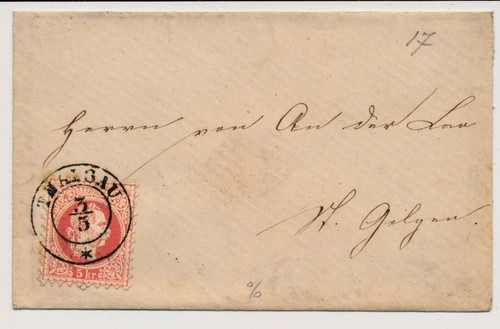 17
Herrn von An der Lan
St. Gilgen.
THALGAU
3/5
*
5 kr.
%